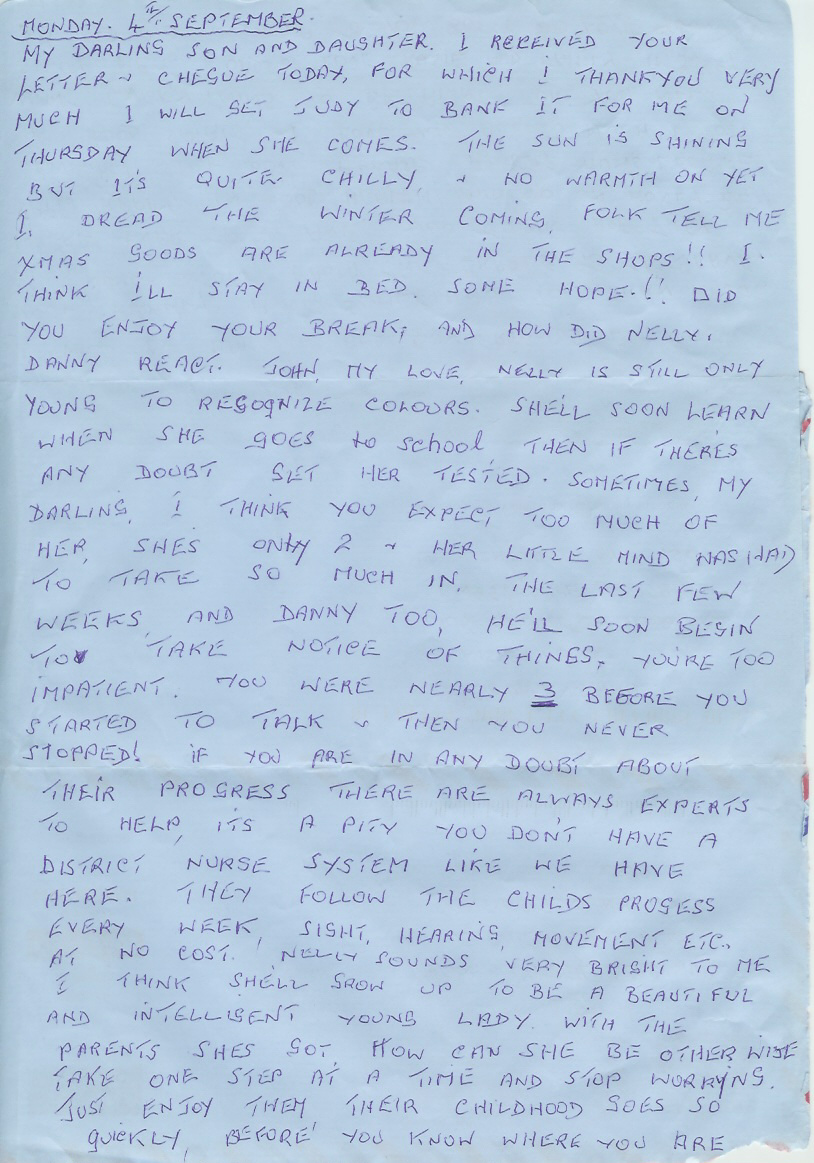 MONDAY. 4TH SEPTEMBER.
MY DARLING SON AND DAUGHTER. I RECEIVED YOUR
LETTER & CHEQUE TODAY, FOR WHICH I THANKYOU VERY
MUCH I WILL GET JUDY TO BANK IT FOR ME ON
THURSDAY WHEN SHE COMES. THE SUN IS SHINING
BUT IT'S QUITE CHILLY, & NO WARMTH ON YET
I. DREAD THE WINTER COMING, FOLK TELL ME
XMAS GOODS ARE ALREADY IN THE SHOPS!! I.
THINK I'LL STAY IN BED. SOME HOPE!! DID
YOU ENJOY YOUR BREAK, AND HOW DID NELLY.
DANNY REACT. JOHN, MY LOVE, NELLY IS STILL ONLY
YOUNG TO RECOGNIZE COLOURS. SHE'LL SOON LEARN
WHEN SHE GOES to school THEN IF THERE'S
ANY DOUBT GET HER TESTED. SOMETIMES, MY
DARLING, I THINK YOU EXPECT TOO MUCH OF
HER, SHES ONLY 2 & HER LITTLE MIND HAS HAD
TO TAKE SO MUCH IN. THE LAST FEW
WEEKS, AND DANNY TOO, HE'LL SOON BEGIN
TO TAKE NOTICE OF THINGS, YOU'RE TOO
IMPATIENT. YOU WERE NEARLY 3 BEFORE YOU
STARTED TO TALK & THEN YOU NEVER
STOPPED! IF YOU ARE IN ANY DOUBT ABOUT
THEIR PROGRESS THERE ARE ALWAYS EXPERTS
TO HELP, ITS A PITY YOU DON'T HAVE A
DISTRICT NURSE SYSTEM LIKE WE HAVE
HERE. THEY FOLLOW THE CHILDS PROGESS
EVERY WEEK, SIGHT, HEARING, MOVEMENT ETC.,
AT NO COST. NELLY SOUNDS VERY BRIGHT TO ME
I THINK SHE'LL GROW UP TO BE A BEAUTIFUL
AND INTELLIGENT YOUNG LADY. WITH THE
PARENTS SHES GOT, HOW CAN SHE BE OTHER WISE
TAKE ONE STEP AT A TIME AND STOP WORRYING.
JUST ENJOY THEM THEIR CHILDHOOD GOES SO
QUICKLY, BEFORE YOU KNOW WHERE YOU ARE